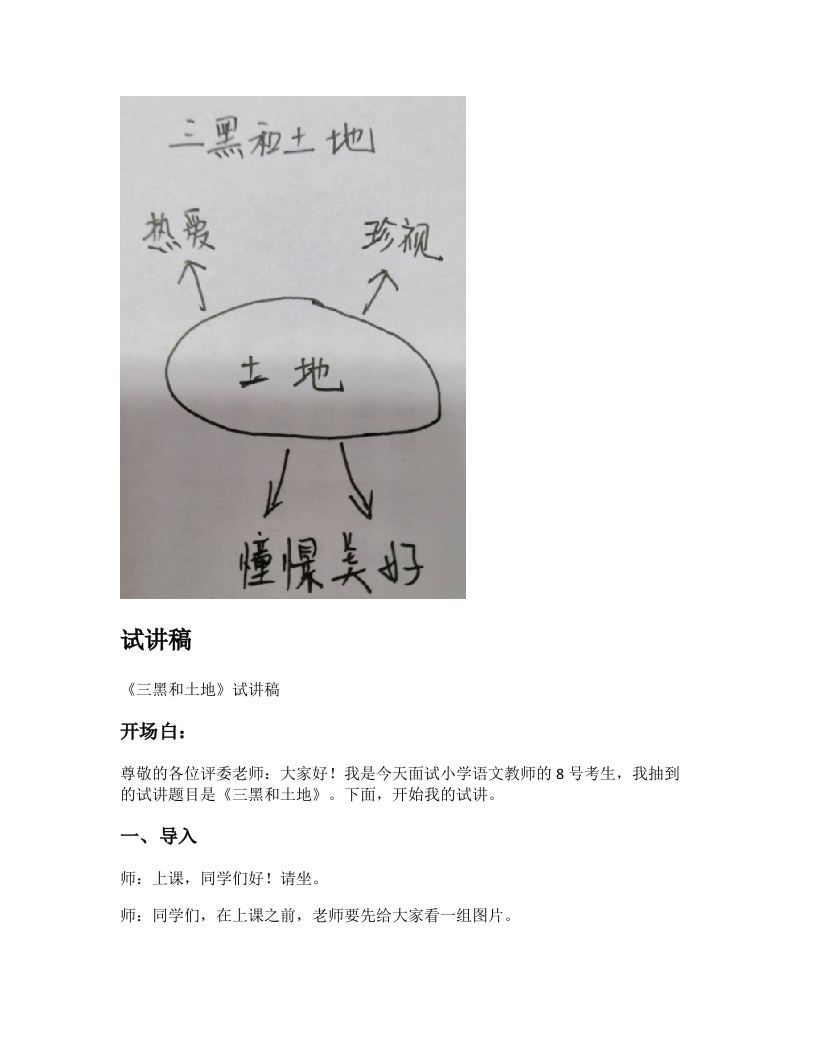 三黑和土地
热爱 珍视
土地
憧憬美好
试讲稿
《三黑和土地》试讲稿
开场白：
尊敬的各位评委老师：大家好！我是今天面试小学语文教师的 8 号考生，我抽到
的试讲题目是《三黑和土地》。下面，开始我的试讲。
一、导入
师：上课，同学们好！请坐。
师：同学们，在上课之前，老师要先给大家看一组图片。